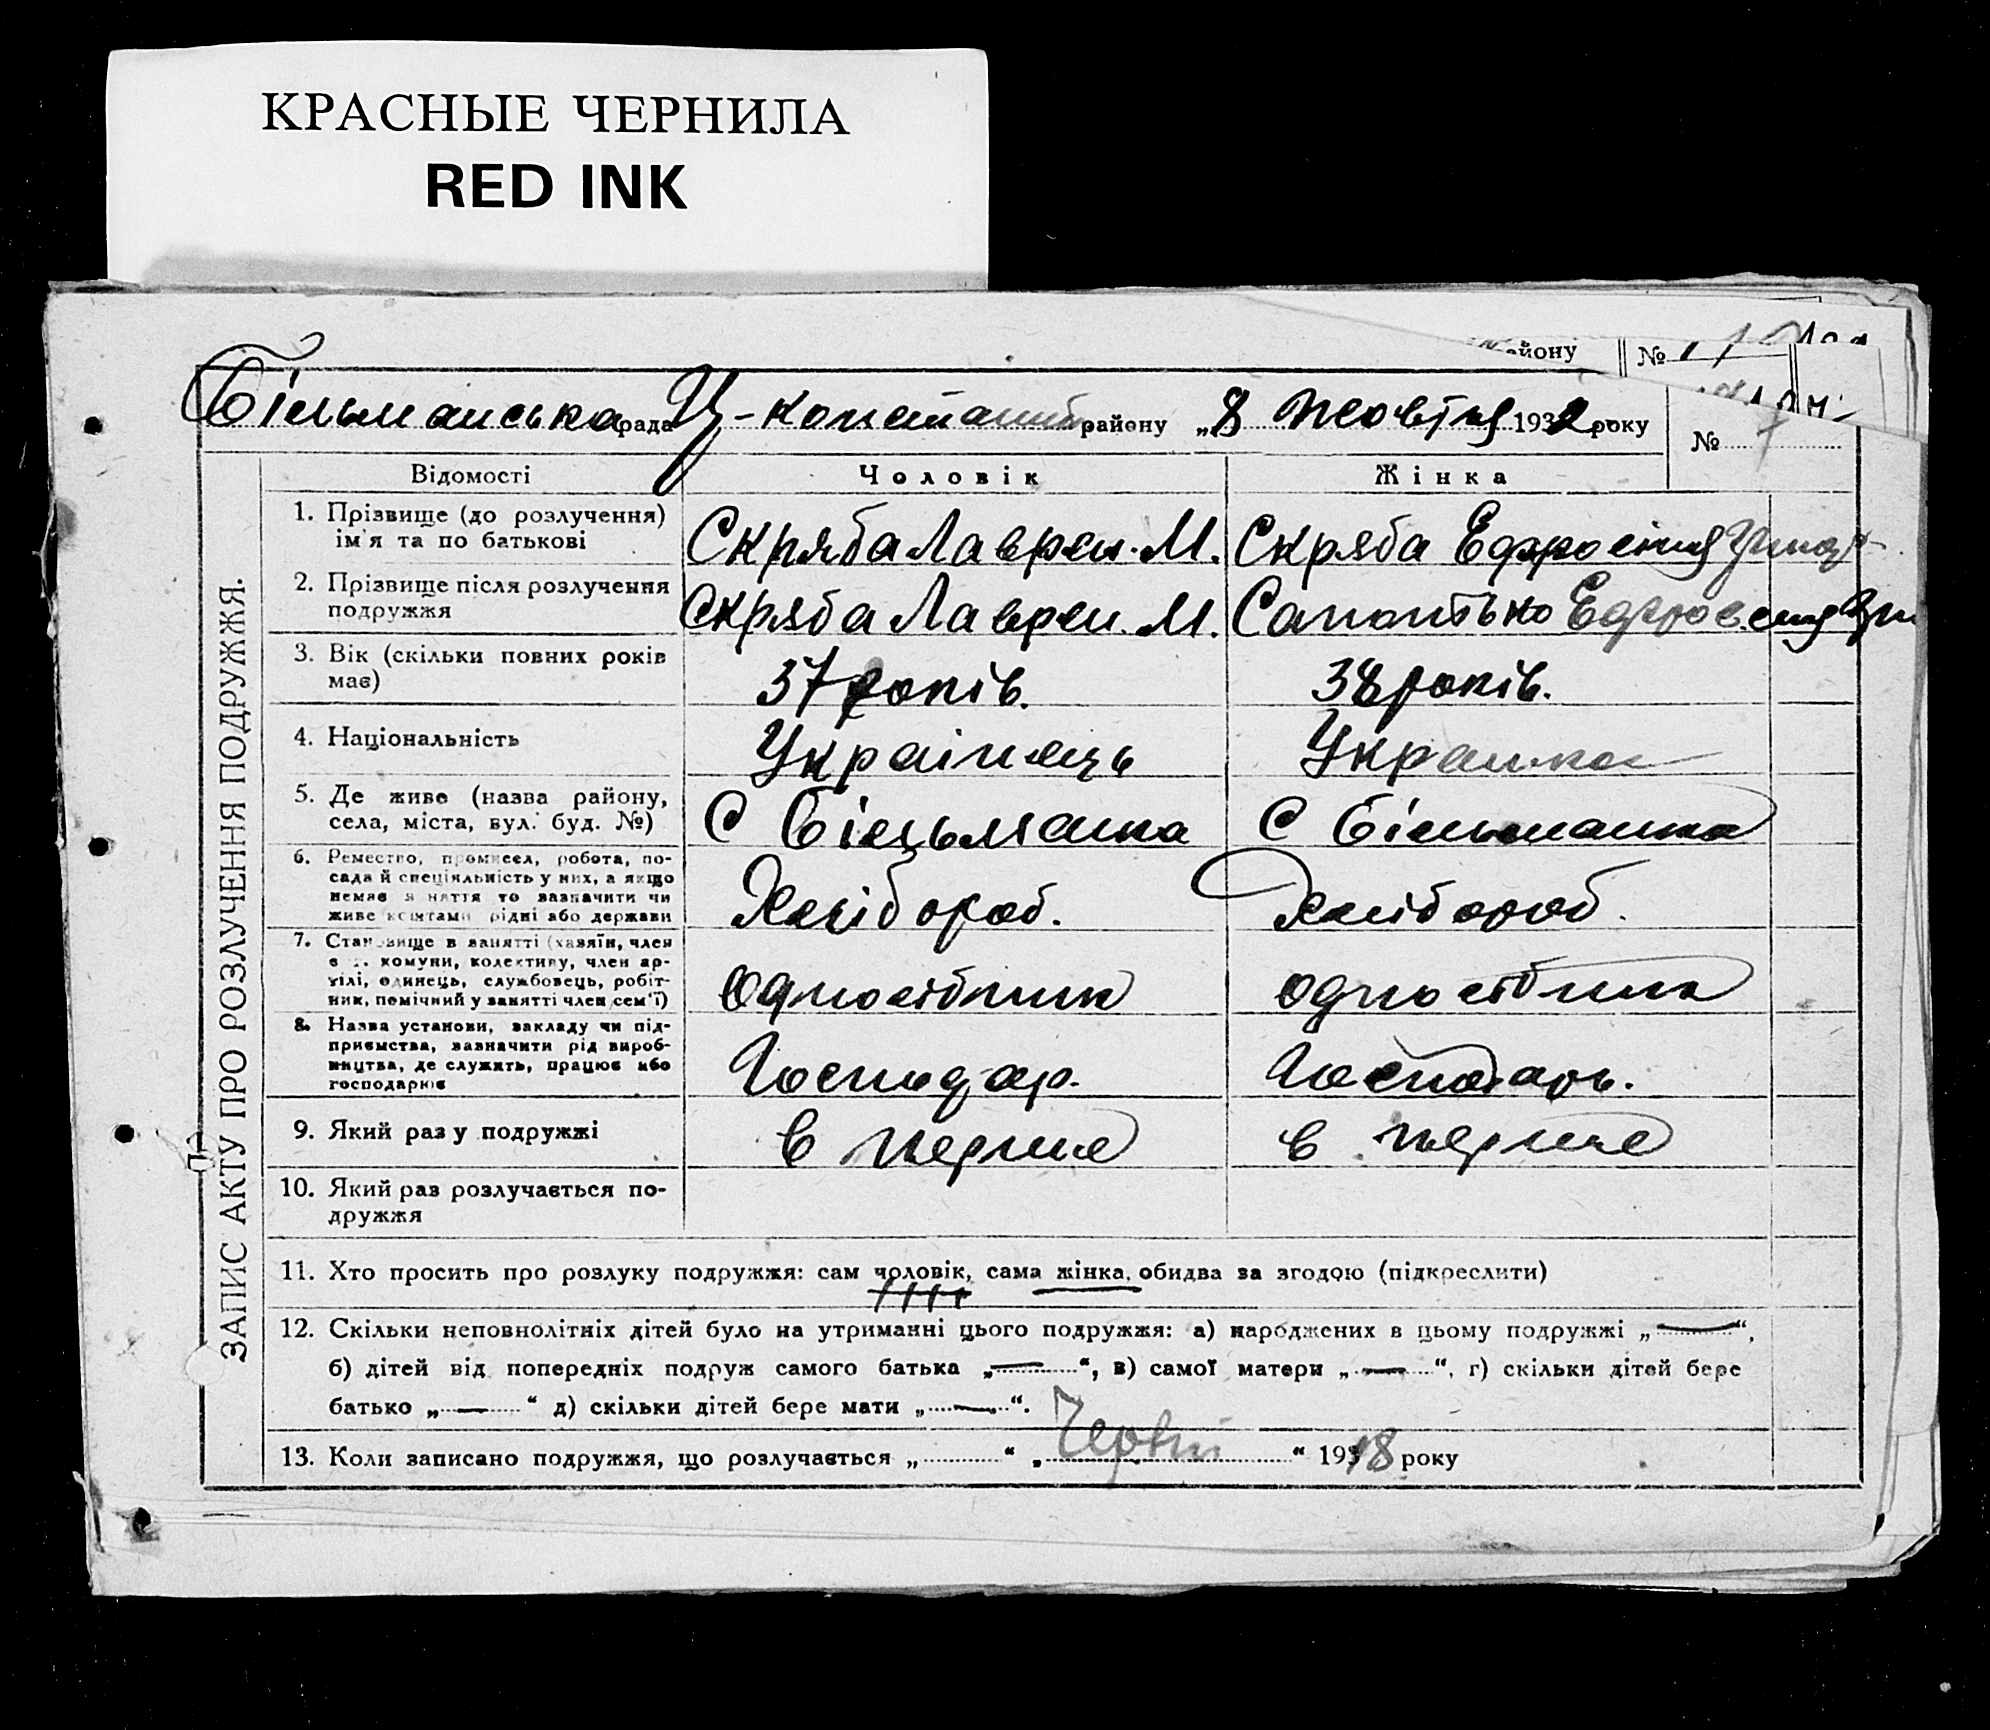 КРАСНЫЕ ЧЕРНИЛА
RED INK
айону № 1
Більманська рада Ц-констант району „8 Жовтня 1932 року № 7
ЗАПИС АКТУ ПРО РОЗЛУЧЕННЯ ПОДРУЖЖЯ.
Відомості Чоловік Жінка
1. Прізвище (до розлучення) ім'я та по батькові Скряба Лаврен. М. Скряба Ефросінія
2. Прізвище після розлучення подружжя Скряба Лаврен. М. Ефросенія
3. Вік (скільки повних років має) 37 років. 38 років.
4. Національність Українець Украинка
5. Де живе (назва району, села, міста, вул. буд. №) С Більманка С Більманка
6. Ремество, промисел, робота, по-
сада й спеціяльність у них, а якщо
немає заняття то зазначити чи
живе коштами рідні або держави Хлібороб. Хлібороб.
7. Становище в занятті (хазяїн, член
с.-г. комуни, колективу, член ар-
тілі, одинець, службовець, робіт-
ник, помічний у занятті член сем'ї) Одноосібник одноосібник
8. Назва установи, закладу чи під-
приємства, зазначити рід вироб-
ництва, де служить, працює або
господарює Господар. Господарь.
9. Який раз у подружжі в перше в перше
10. Який раз розлучається по-
дружжя
11. Хто просить про розлуку подружжя: сам чоловік, сама жінка, обидва за згодою (підкреслити)
12. Скільки неповнолітніх дітей було на утриманні цього подружжя: а) народжених в цьому подружжі „—“,
б) дітей від попередніх подруж самого батька „—“, в) самої матери „—“, г) скільки дітей бере
батько „—“ д) скільки дітей бере мати „—“.
13. Коли записано подружжя, що розлучається „ “ „ Червні “ 1918 року